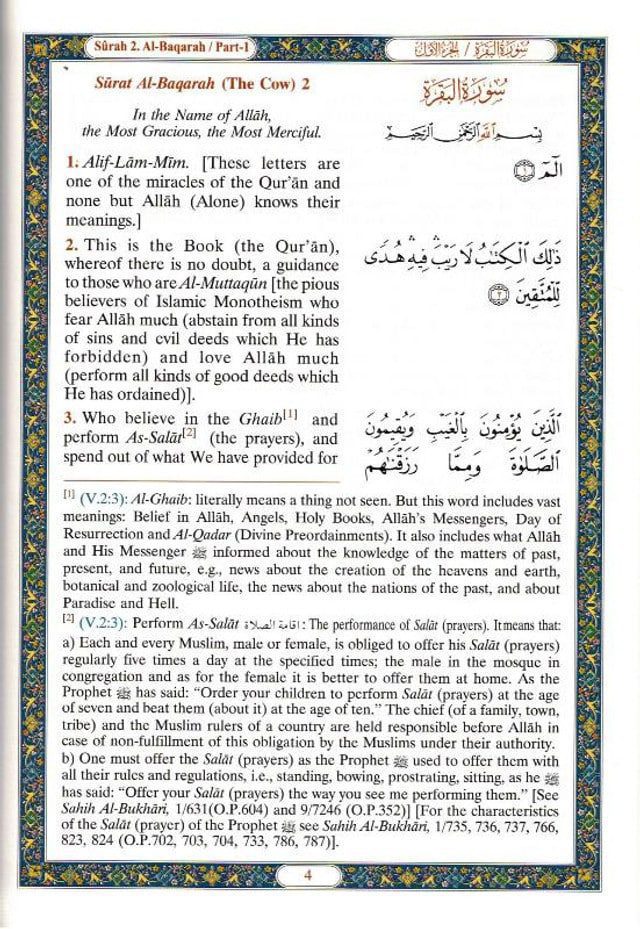 Sûrah 2. Al-Baqarah / Part-1
سُورَةُ البَقَرَة / الجُزءُ الأَوّل
Sûrat Al-Baqarah (The Cow) 2
In the Name of Allâh,
the Most Gracious, the Most Merciful.
1. Alif-Lâm-Mîm. [These letters are
one of the miracles of the Qur'ân and
none but Allâh (Alone) knows their
meanings.]
2. This is the Book (the Qur'ân),
whereof there is no doubt, a guidance
to those who are Al-Muttaqûn [the pious
believers of Islamic Monotheism who
fear Allâh much (abstain from all kinds
of sins and evil deeds which He has
forbidden) and love Allâh much
(perform all kinds of good deeds which
He has ordained)].
3. Who believe in the Ghaib[1] and
perform As-Salât[2] (the prayers), and
spend out of what We have provided for
سُورَةُ البَقَرَة
بِسْمِ ٱللَّهِ ٱلرَّحْمَٰنِ ٱلرَّحِيمِ
الٓمٓ ١
ذَٰلِكَ ٱلْكِتَٰبُ لَا رَيْبَ ۛ فِيهِ ۛ هُدًى
لِّلْمُتَّقِينَ ٢
ٱلَّذِينَ يُؤْمِنُونَ بِٱلْغَيْبِ وَيُقِيمُونَ
ٱلصَّلَوٰةَ وَمِمَّا رَزَقْنَٰهُمْ
[1] (V.2:3): Al-Ghaib: literally means a thing not seen. But this word includes vast
meanings: Belief in Allâh, Angels, Holy Books, Allâh's Messengers, Day of
Resurrection and Al-Qadar (Divine Preordainments). It also includes what Allâh
and His Messenger ﷺ informed about the knowledge of the matters of past,
present, and future, e.g., news about the creation of the heavens and earth,
botanical and zoological life, the news about the nations of the past, and about
Paradise and Hell.
[2] (V.2:3): Perform As-Salât اقامة الصلاة : The performance of Salât (prayers). It means that:
a) Each and every Muslim, male or female, is obliged to offer his Salât (prayers)
regularly five times a day at the specified times; the male in the mosque in
congregation and as for the female it is better to offer them at home. As the
Prophet ﷺ has said: “Order your children to perform Salât (prayers) at the age
of seven and beat them (about it) at the age of ten.” The chief (of a family, town,
tribe) and the Muslim rulers of a country are held responsible before Allâh in
case of non-fulfillment of this obligation by the Muslims under their authority.
b) One must offer the Salât (prayers) as the Prophet ﷺ used to offer them with
all their rules and regulations, i.e., standing, bowing, prostrating, sitting, as he ﷺ
has said: “Offer your Salât (prayers) the way you see me performing them.” [See
Sahih Al-Bukhâri, 1/631(O.P.604) and 9/7246 (O.P.352)] [For the characteristics
of the Salât (prayer) of the Prophet ﷺ see Sahih Al-Bukhâri, 1/735, 736, 737, 766,
823, 824 (O.P.702, 703, 704, 733, 786, 787)].
4